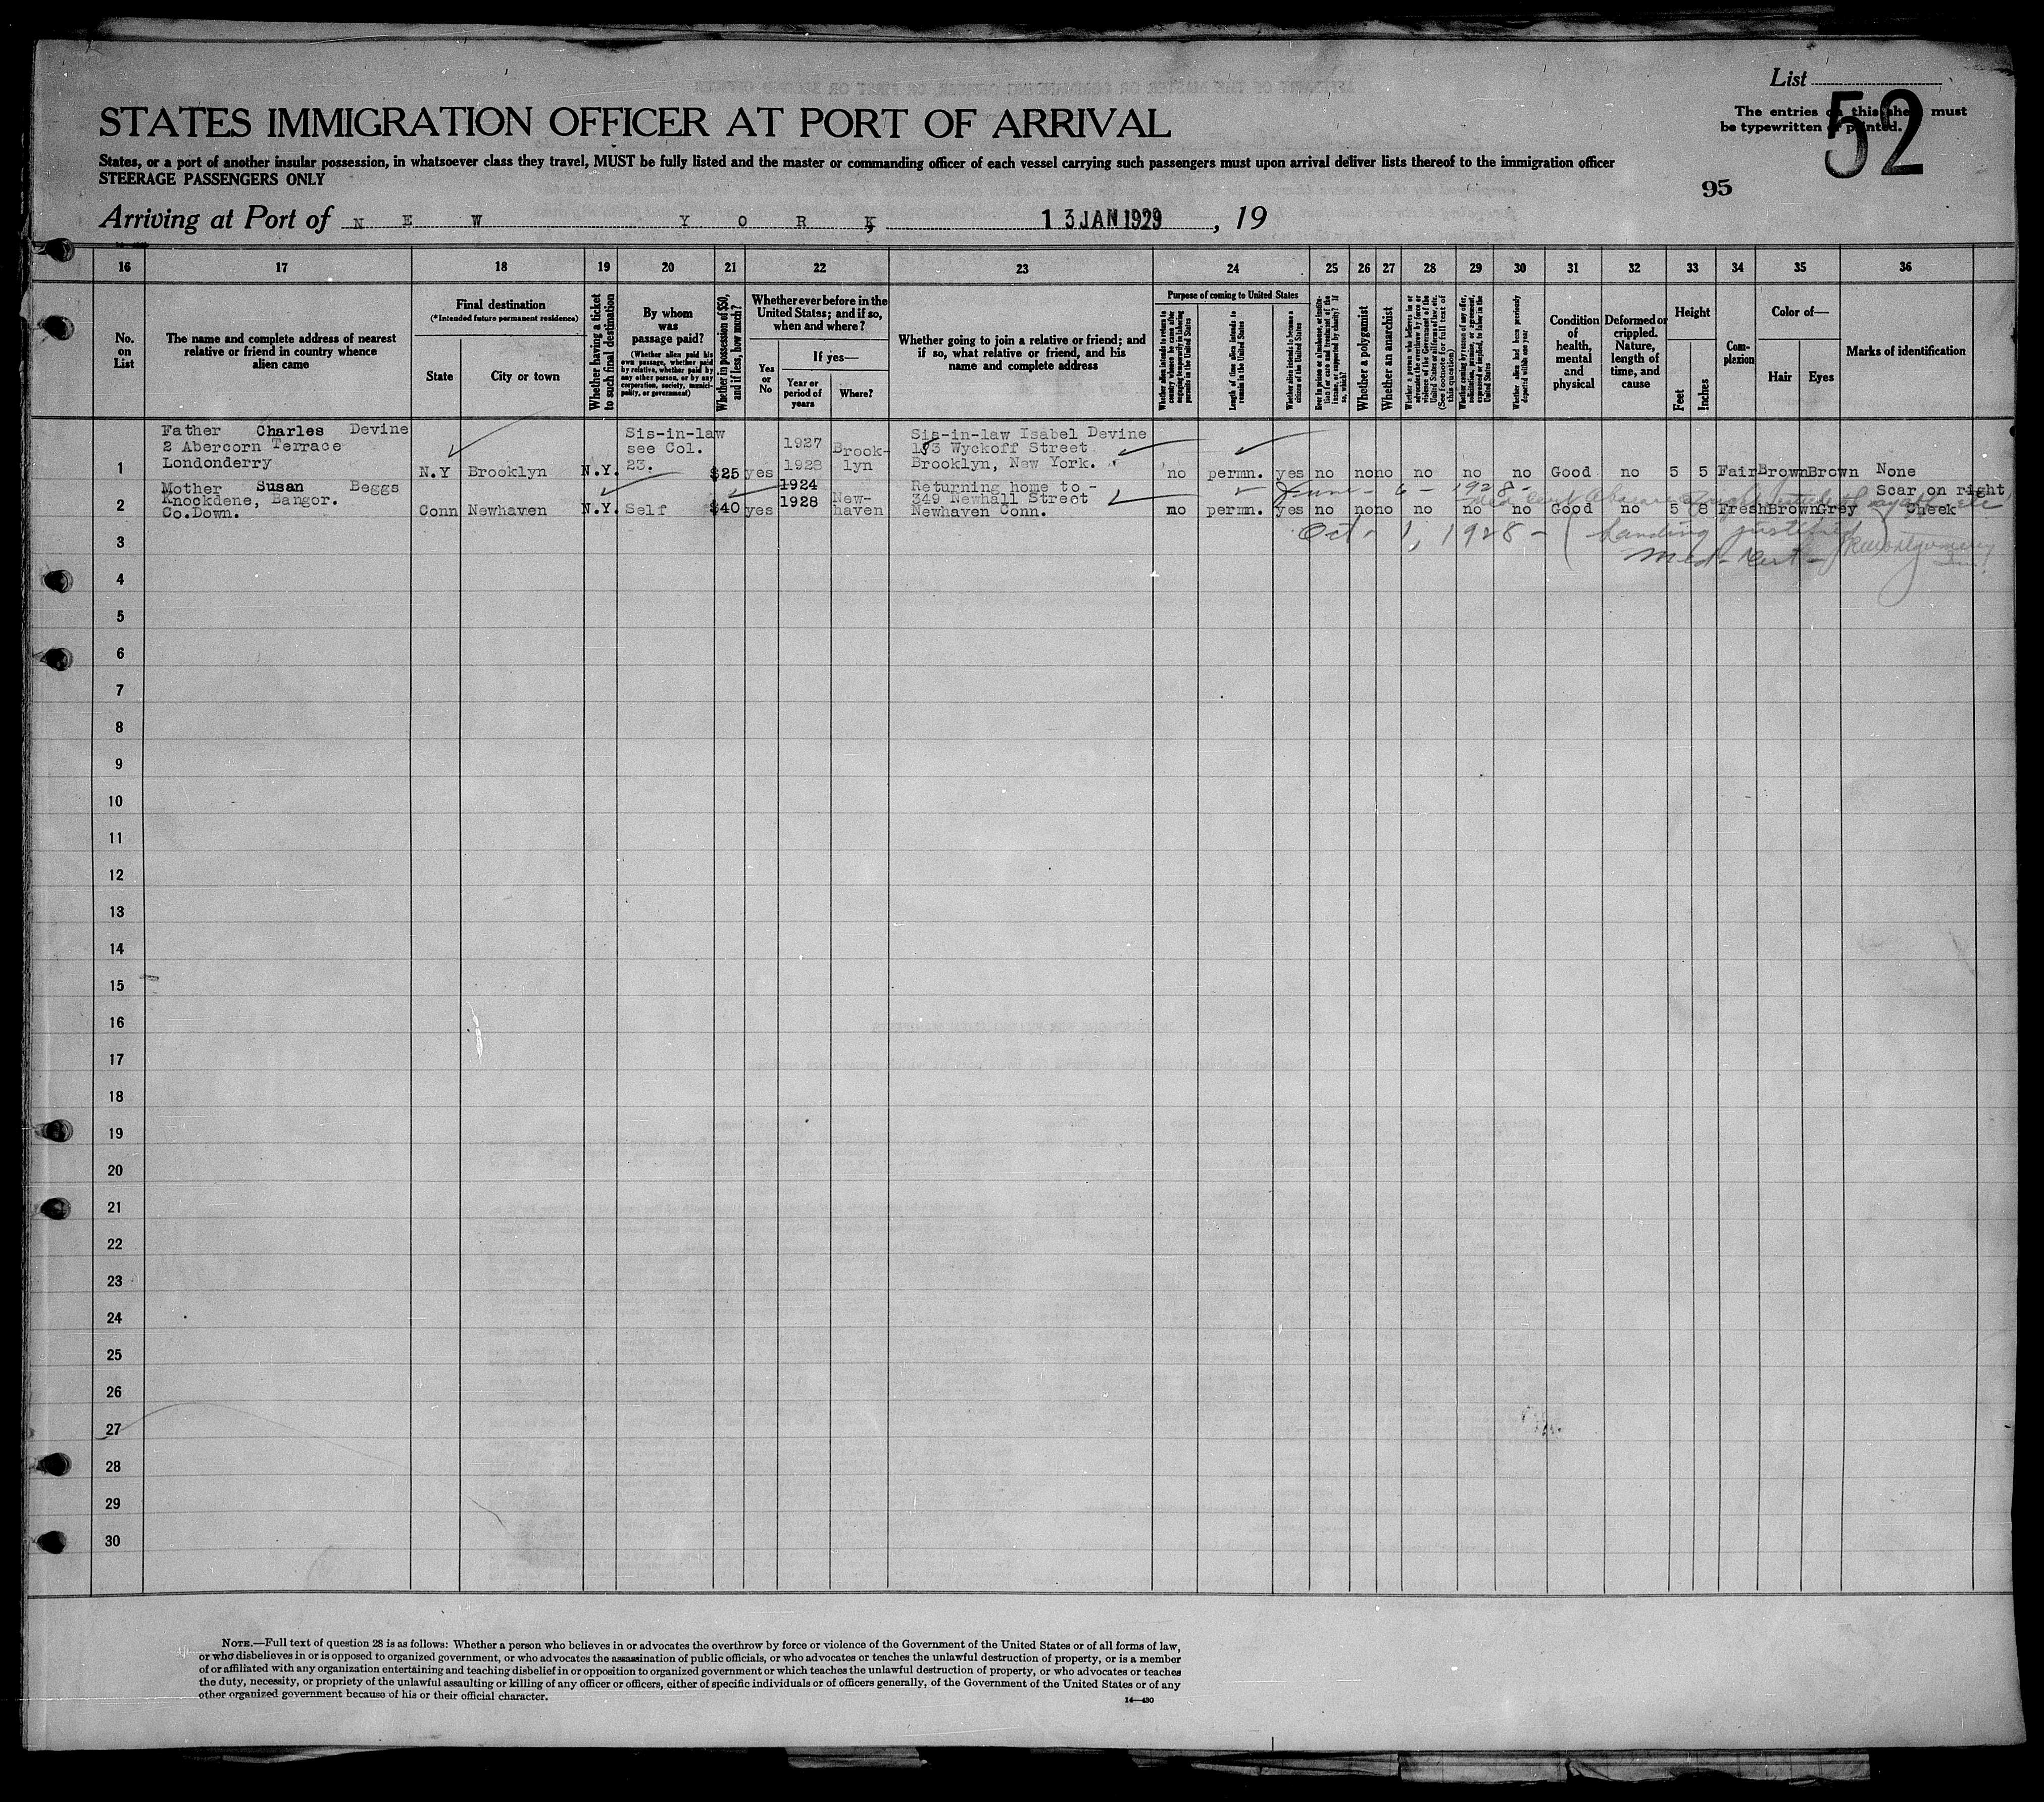 List
The entries on this sheet must
be typewritten or printed.
52
95
STATES IMMIGRATION OFFICER AT PORT OF ARRIVAL
States, or a port of another insular possession, in whatsoever class they travel, MUST be fully listed and the master or commanding officer of each vessel carrying such passengers must upon arrival deliver lists thereof to the immigration officer
STEERAGE PASSENGERS ONLY
Arriving at Port of NEW YORK, 13 JAN 1929, 19
16 17 18 19 20 21 22 23 24 25 26 27 28 29 30 31 32 33 34 35 36
No.
on
List
The name and complete address of nearest
relative or friend in country whence
alien came
Final destination
(*Intended future permanent residence)
State
City or town
Whether having a ticket
to such final destination
By whom
was
passage paid?
(Whether alien paid his
own passage, whether paid
by relative, whether paid by
any other person, or by any
corporation, society, munici-
pality, or government)
Whether in possession of $50,
and if less, how much?
Whether ever before in the
United States; and if so,
when and where?
Yes
or
No
If yes—
Year or
period of
years
Where?
Whether going to join a relative or friend; and
if so, what relative or friend, and his
name and complete address
Purpose of coming to United States
Whether alien intends to return to
country whence he came after
engaging temporarily in laboring
pursuits in the United States
Length of time alien intends to
remain in the United States
Whether alien intends to become a
citizen of the United States
Ever in prison or almshouse, or institu-
tion for care and treatment of the
insane, or supported by charity? If
so, which?
Whether a polygamist
Whether an anarchist
Whether a person who believes in or
advocates the overthrow by force or
violence of the Government of the
United States or all forms of law, etc.
(See footnote for full text of
this question)
Whether coming by reason of any offer,
solicitation, promise, or agreement,
expressed or implied, to labor in the
United States
Whether alien had been previously
deported within one year
Condition
of
health,
mental
and
physical
Deformed or
crippled.
Nature,
length of
time, and
cause
Height
Feet
Inches
Com-
plexion
Color of—
Hair
Eyes
Marks of identification
Father Charles Devine
2 Abercorn Terrace
Londonderry
1 N.Y Brooklyn N.Y.
Sis-in-law
see Col.
23.
$25 yes
1927
1928
Brook-
lyn
Sis-in-law Isabel Devine
183 Wyckoff Street
Brooklyn, New York.
no permn. yes no no no no no no Good no 5 5 Fair Brown Brown None
Mother Susan Beggs
Knockdene, Bangor.
Co.Down.
2 Conn Newhaven N.Y. Self $40 yes
1924
1928
New-
haven
Returning home to -
349 Newhall Street
Newhaven Conn.
no permn. yes no no no no no no Good no 5 8 Fresh Brown Grey
Scar on right
Cheek
June - 6 - 1928 -
Oct - 1, 1928 - (Landing justified
Med- Cert -
3
4
5
6
7
8
9
10
11
12
13
14
15
16
17
18
19
20
21
22
23
24
25
26
27
28
29
30
NOTE.—Full text of question 28 is as follows: Whether a person who believes in or advocates the overthrow by force or violence of the Government of the United States or of all forms of law,
or who disbelieves in or is opposed to organized government, or who advocates the assassination of public officials, or who advocates or teaches the unlawful destruction of property, or is a member
of or affiliated with any organization entertaining and teaching disbelief in or opposition to organized government or which teaches the unlawful destruction of property, or who advocates or teaches
the duty, necessity, or propriety of the unlawful assaulting or killing of any officer or officers, either of specific individuals or of officers generally, of the Government of the United States or of any
other organized government because of his or their official character.
14—430